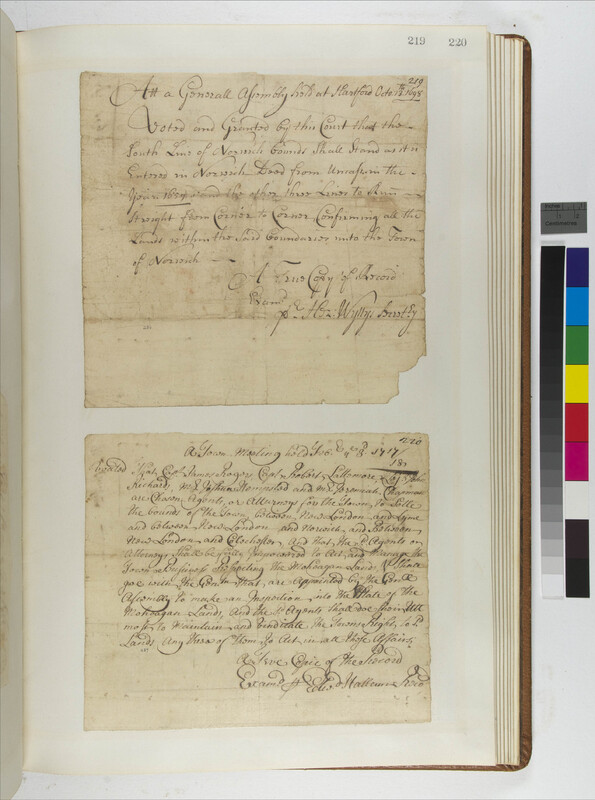 219 220
219
Att a Generall Assembly held at Hartford Octobr 13th 1698
Voted and Granted by this Court that the
South Line of Norwich bounds Shall Stand as it is
Entered in Norwich Deed from Uncas in the
Year 1659 and the other three Lines to Run
Streight from Corner to Corner Confirming all the
Lands within the said boundaries unto the Town
of Norwich
A True Copy of Record
Examd
pr Hez: Wyllys Secretry
220
A Town Meeting held Feb. ye 3d 1717/
18
Voated That Capt James Rogers Capt Robert Lattemore, John
Richards, Mr Joshua Hempsted and Mr Jeremiah Chapman
are Chosen Agents, or Attorneys for the Town, to Settle
the bounds of the Town, between New London and Lyme
and between New London and Norwich and between
New London and Colchester, And that the sd Agents or
Attorneys Shall be fully Impowered to Act and Manage the
Towns Business Respecting the Mohegan Land, & Shall
goe with the Gentn That are Appointed by the Genll
Assembly to make an Inspection into the State of the
Mohegan Lands, And the sd Agents Shall doe their Utt
most to Maintain and Vindicate the Towns Right, to sd
Lands Any three of them To Act in all those Affairs,
A True Copie of the Record
Examd pr Edwd Hallam Recd